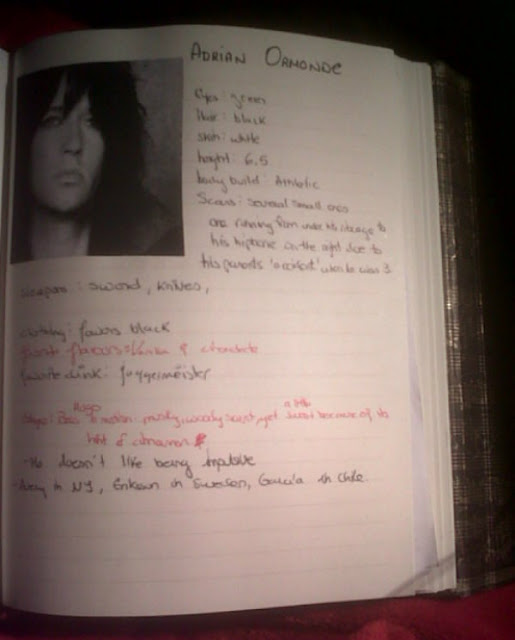 ADRIAN ORMONDE
Eyes: green
Hair: black
skin: white
height: 6.5
body build: Athletic
Scars: several small ones
are running from under his ribcage to
his hipbone on the right due to
his parents 'accident' when he was 3
weapons: sword, knives,
clothing: favors black
flavors: & chocolate
drink: Jaggermeister
Hugo
a little
Boss motion: woody scent, yet sweet because of its
hint of cinnamon
- He doesn't like being impulsive
- in NY, Erikson in Sweden, García in Chile.